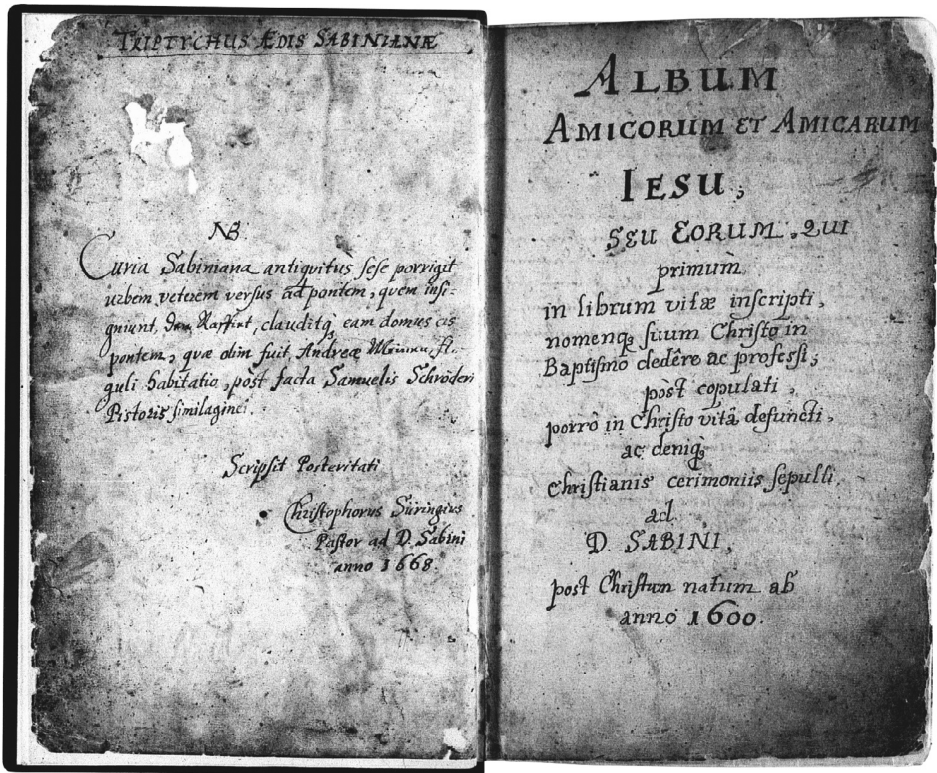 TRIPTYCHUS ÆDIS SABINIANÆ
NB.
Curia Sabiniana antiquitùs sese porrigit
urbem veterem versus ad pontem, quem insi-
gniunt, den Raffirt, clauditq, eam domus cis
pontem, quæ olim fuit, Andreæ fi-
guli habitatio, pòst facta Samuelis Schröderi
Pistoris similaginei.
Scripsit Posteritati
Christophorus Süringius
Pastor ad D. Sabini
anno 1668.
ALBUM
AMICORUM ET AMICARUM
IESU,
SEU EORUM, QUI
primùm
in librum vitæ inscripti,
nomenq, suum Christo in
Baptismo dedêre ac professi,
pòst copulati,
porrò in Christo vitâ defuncti,
ac deniq,
Christianis cerimoniis sepulti
ad
D. SABINI,
post Christum natum ab
anno 1600.